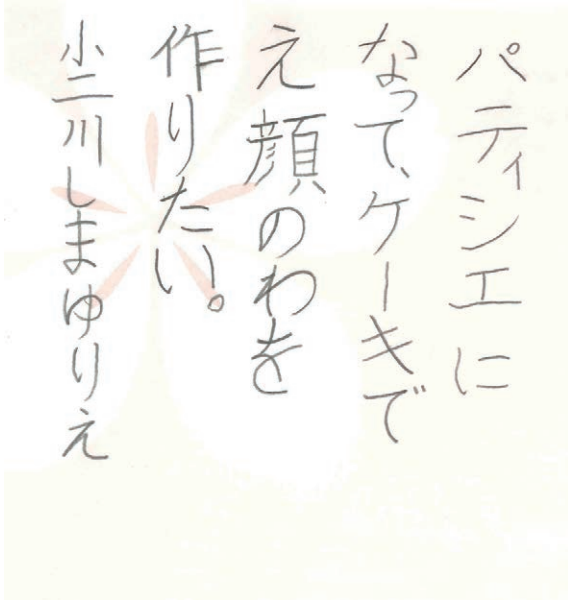 パティシエに
なって、ケーキで
え顔のわを
作りたい。
小二川しまゆりえ